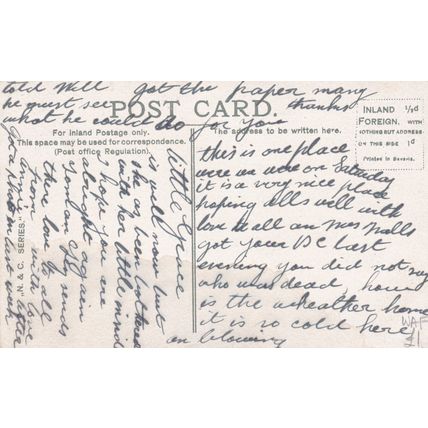 told Will got the paper many
he must see thanks
what he could do for you
POST CARD.
For Inland Postage only.
This space may be used for correspondence.
(Post office Regulation).
The address to be written here.
INLAND ½d
FOREIGN.
WITH NOTHING BUT ADDRESS
ON THIS SIDE 1d
Printed in Bavaria.
"N. & C. SERIES."
this is one place
were we were on Saturday
it is a very nice place
hoping alls well with
love to all an Mrs Walls
got your PC last
evening you did not say
who was dead, how
is the weather home
it is so cold here
an blowing
little
is well now but
he as been bothered
with her little mind
I hope you are
alright again
sends
there love to all
from
Annie